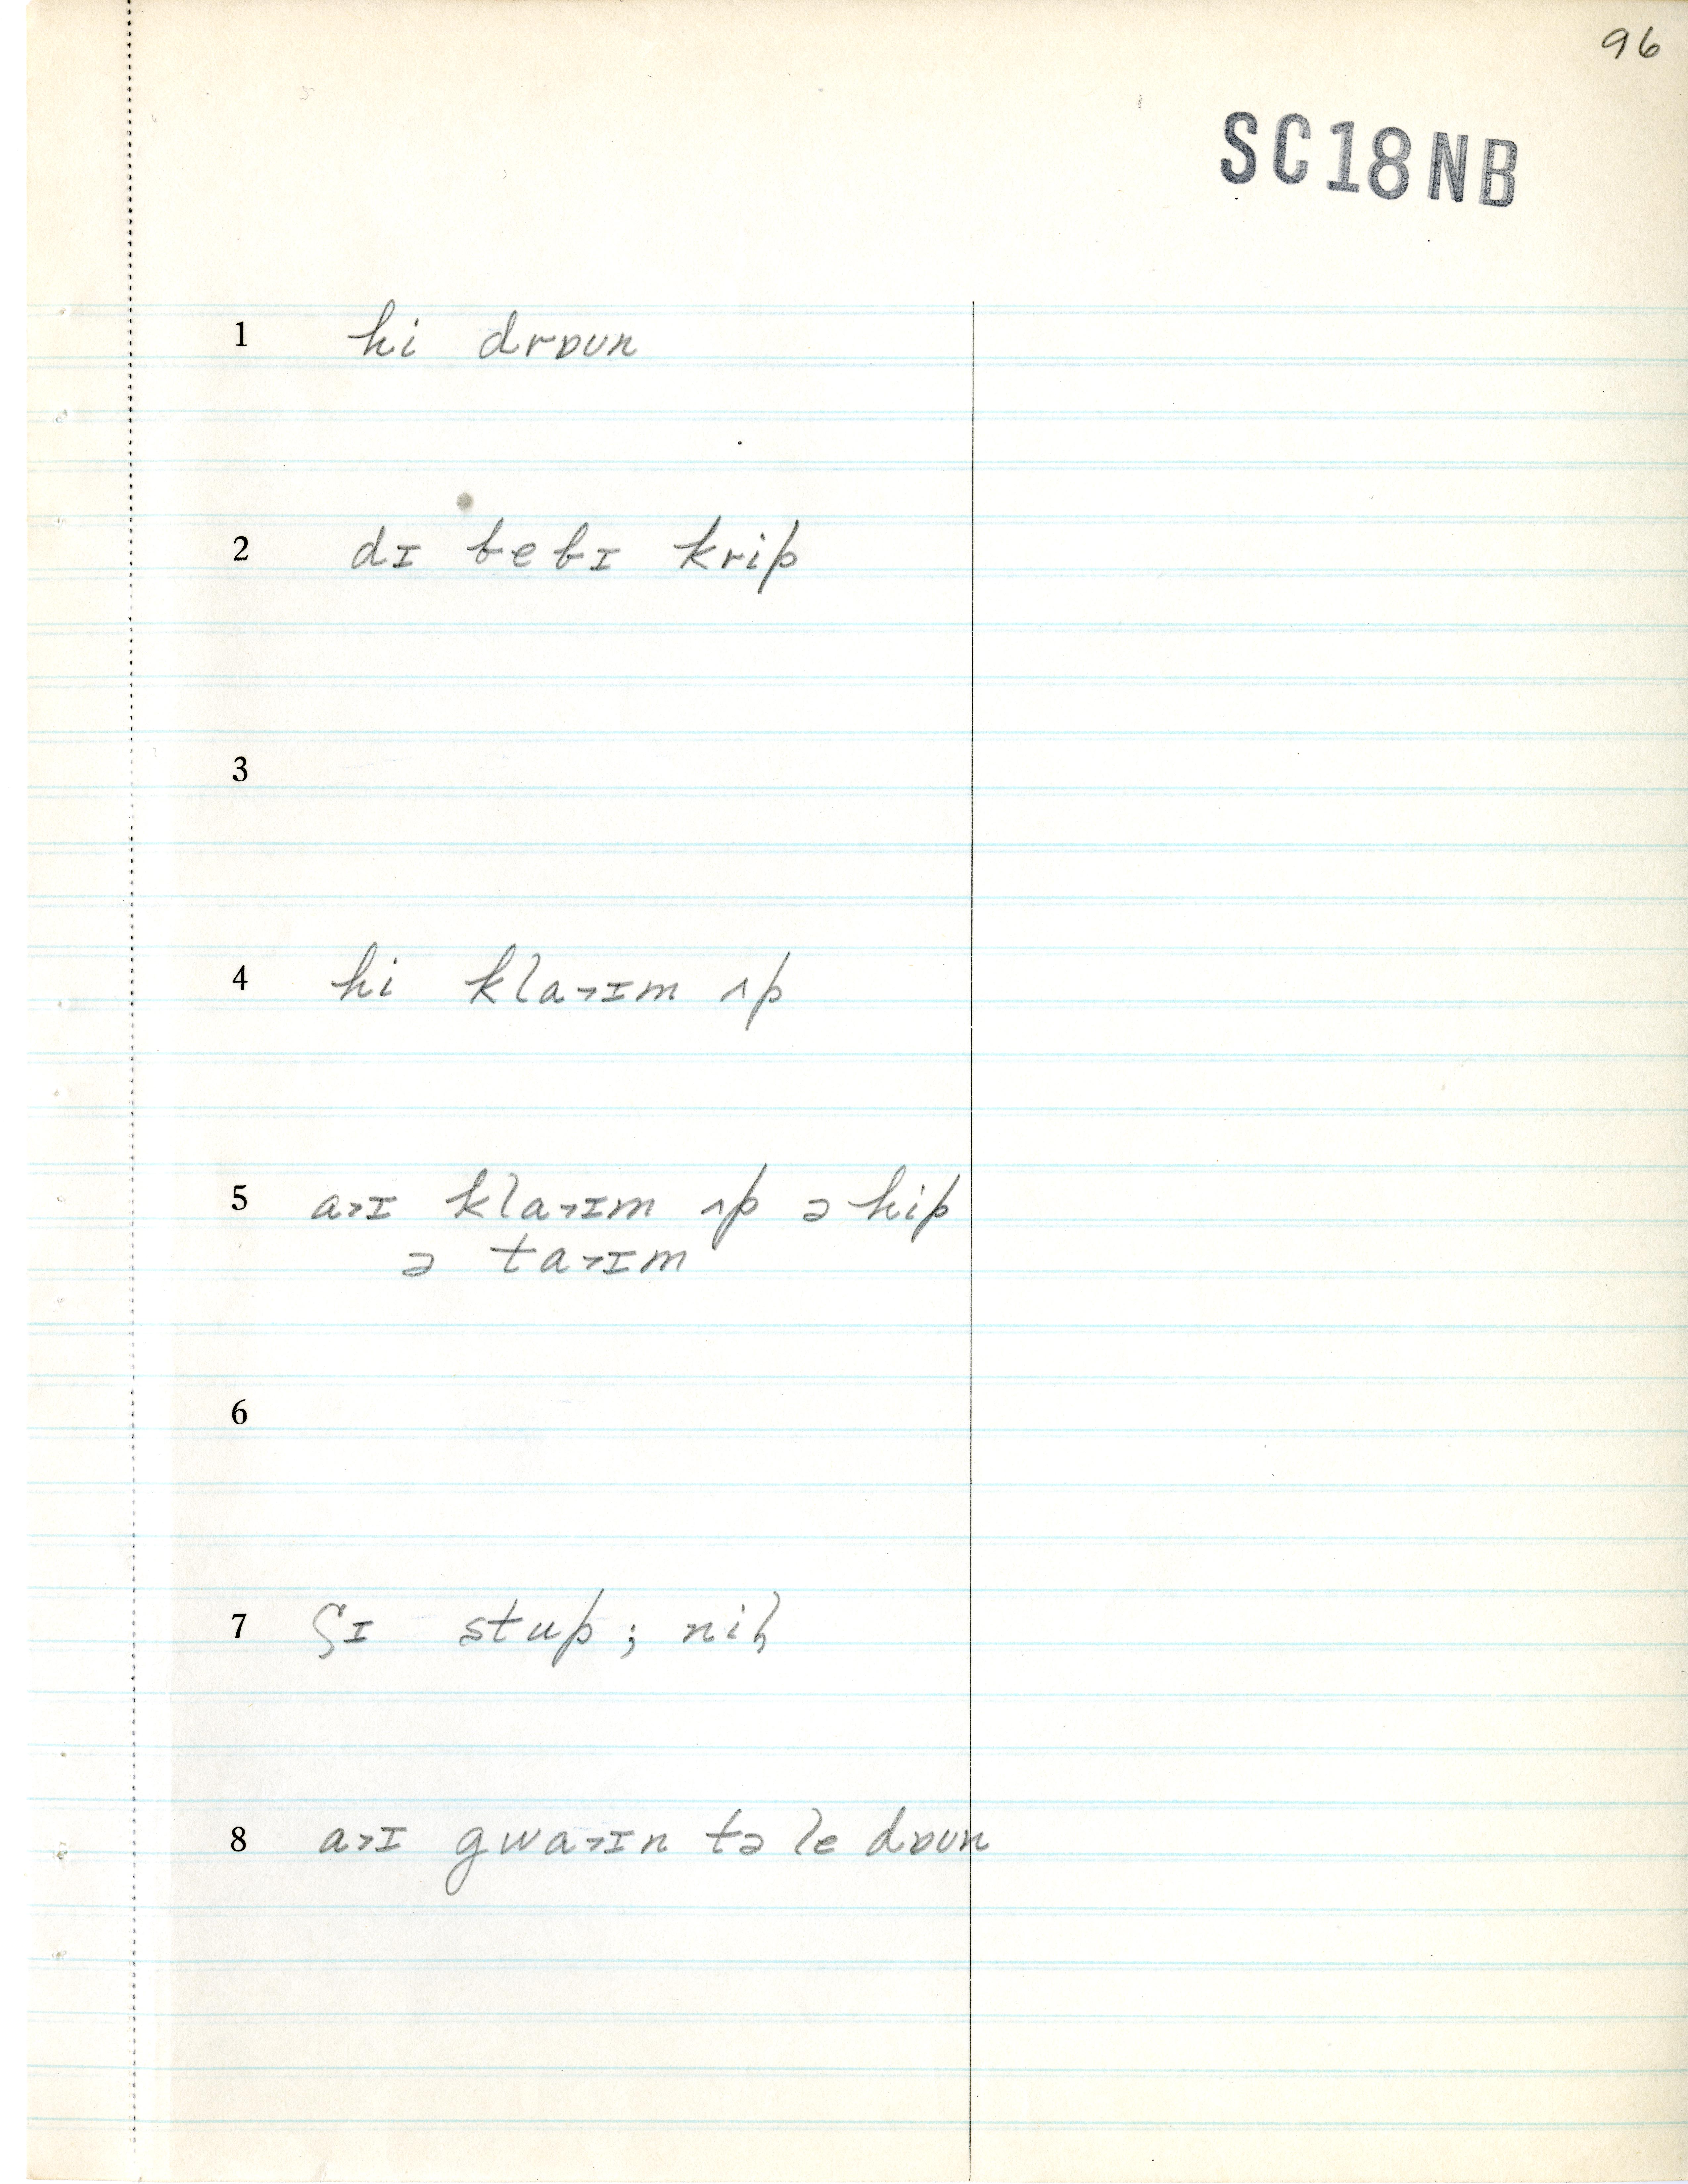 96
SC18NB
1 hi drɒun
2 dɪ bebɪ krip
3
4 hi kla˃ɪm ʌp
5 a˃ɪ kla˃ɪm ʌp ə hip
ə ta˃ɪm
6
7 ʃɪ stup; nil̡
8 a˃ɪ gwa˃ɪn tə le dɒun